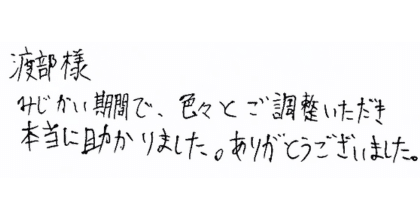 渡部様
みじかい期間で、色々とご調整いただき
本当に助かりました。ありがとうございました。